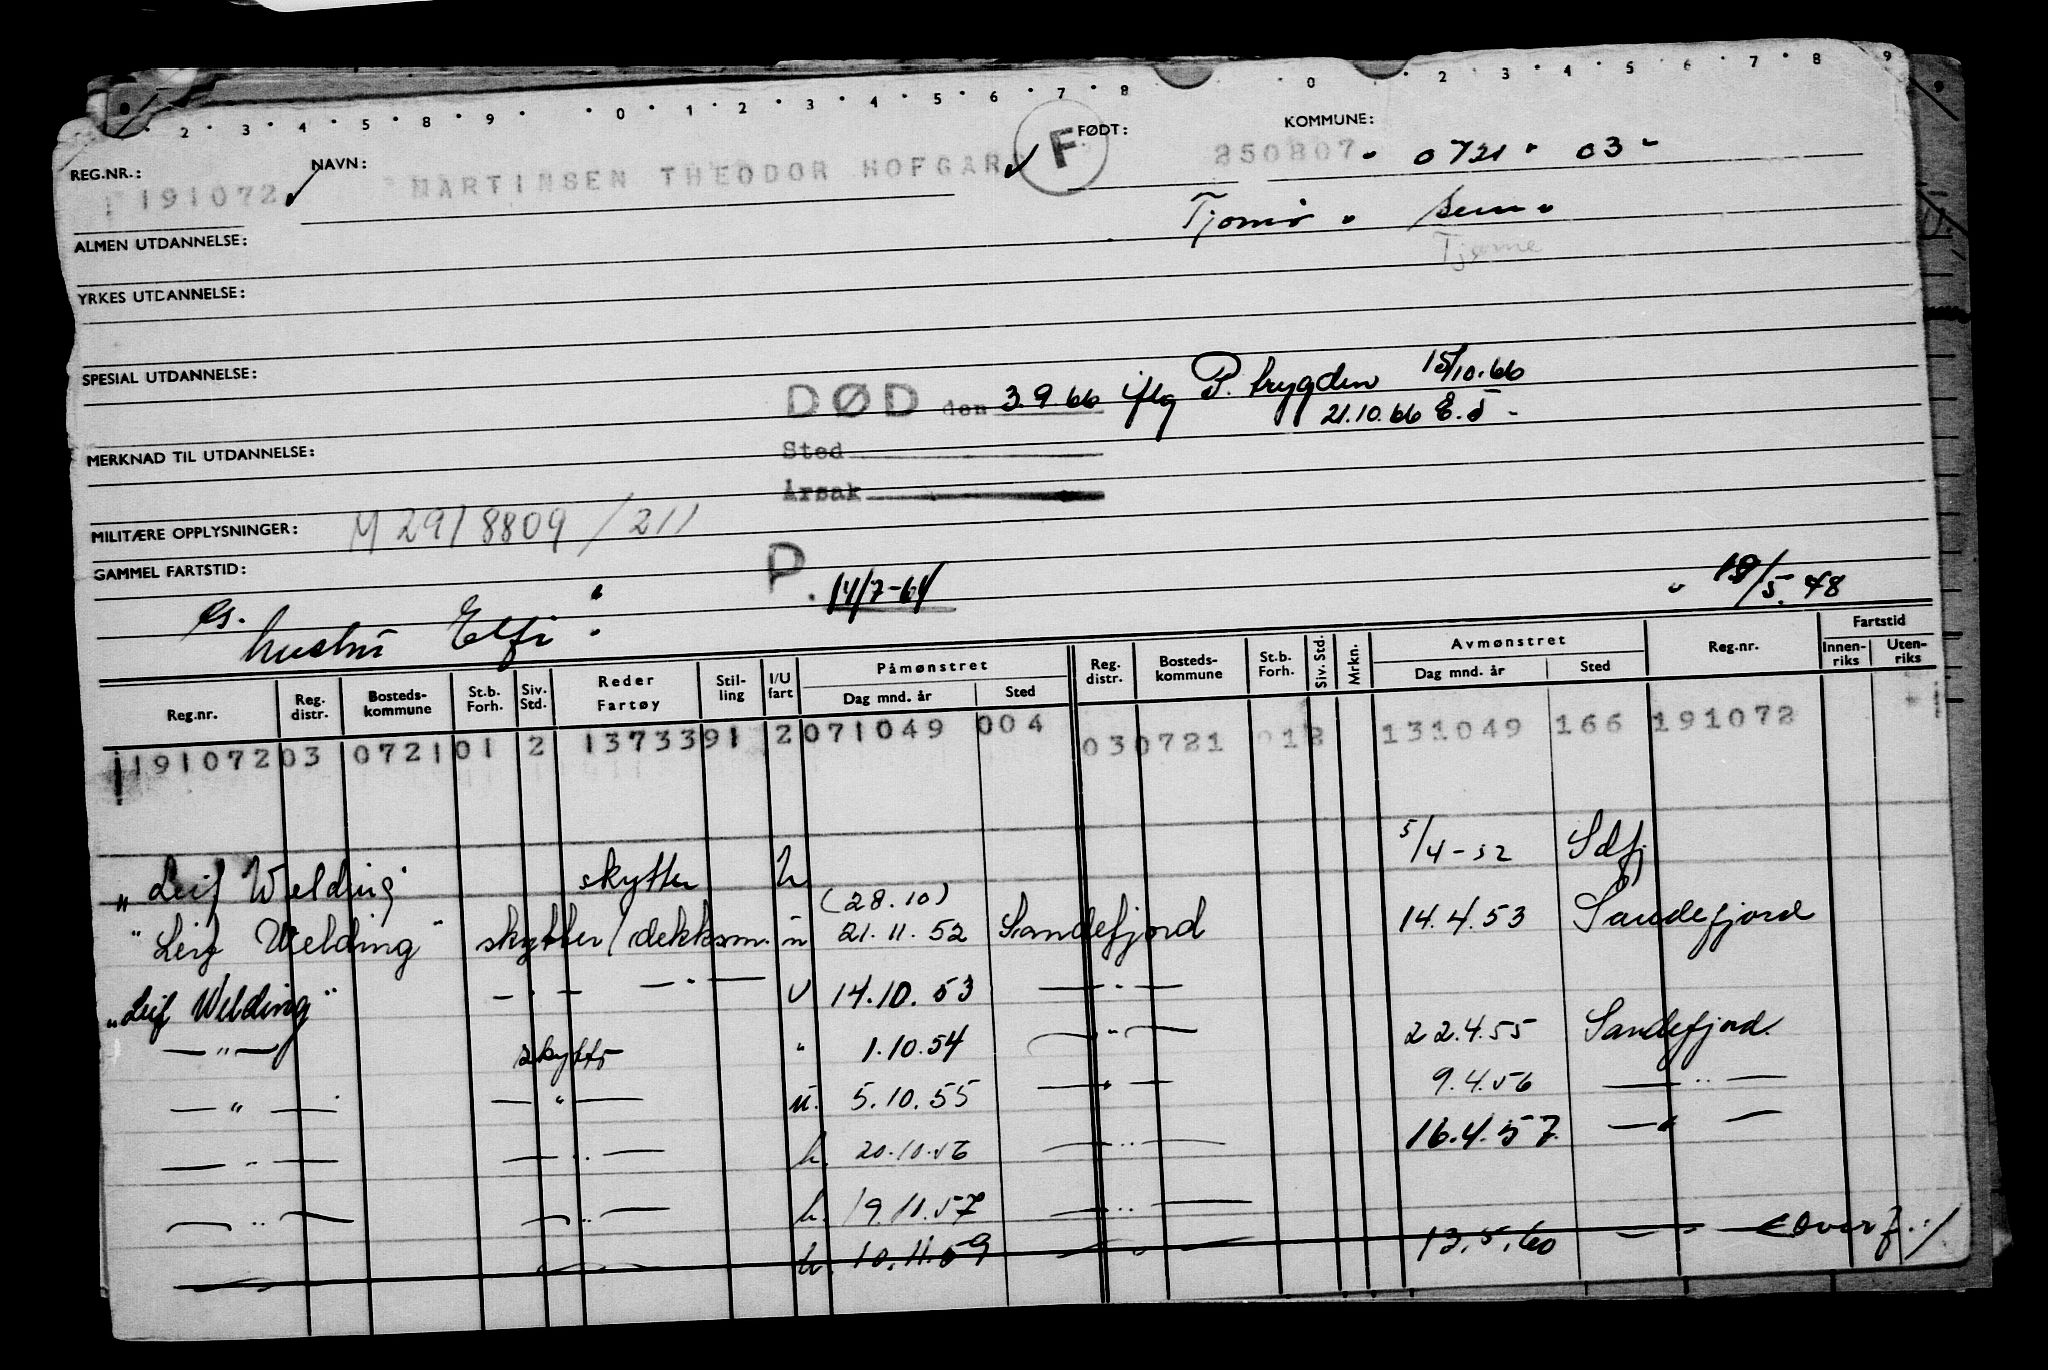 2 3 4 5 8 9 0 1 2 3 4 5 6 7 8 0 2 3 4 5 6 7 8 9
REG.NR.: NAVN: FØDT: KOMMUNE:
191072 MARTINSEN THEODOR HOFGARD F 250807 0721 03
Tjømø Sem
Tjøme
ALMEN UTDANNELSE:
YRKES UTDANNELSE:
SPESIAL UTDANNELSE:
DØD den 3.9 66 iflg P. trygden 15/10.66
21.10.66 E.S
Sted
MERKNAD TIL UTDANNELSE:
Årsak
MILITÆRE OPPLYSNINGER: M 291 8809/211
GAMMEL FARTSTID: P. 14/7-64 18/5.48
gs.
hustru Elfi
Påmønstret Avmønstret Fartstid
Reg.nr. Reg. distr. Bosteds-kommune St.b. Forh. Siv. Std. Reder Fartøy Stil-ling I/U fart Dag mnd. år Sted Reg. distr. Bosteds-kommune St.b. Forh. Siv. Std. Mrkn. Dag mnd. år Sted Reg.nr. Innen-riks Uten-riks
191072 03 0721 01 2 1373391 2 071049 004 030721 012 131049 166 191072
"Leif Welding" skytter u 5/4-52 Sdfj
(28.10)
"Leif Welding" skytter/dekksm. u 21.11.52 Sandefjord 14.4.53 Sandefjord
"Leif Welding" — " — — " — u 14.10.53 — " —
— " — skytter " 1.10.54 — " — 22.4.55 Sandefjord.
— " — — " — u. 5.10.55 — " — 9.4.56 — " —
— " — — " — u. 20.10.56 — " — 16.4.57 — " —
— " — — " — u. 19.11.57 — " —
u. 10.11.59 — " — 13.5.60 — " — Overf. ./